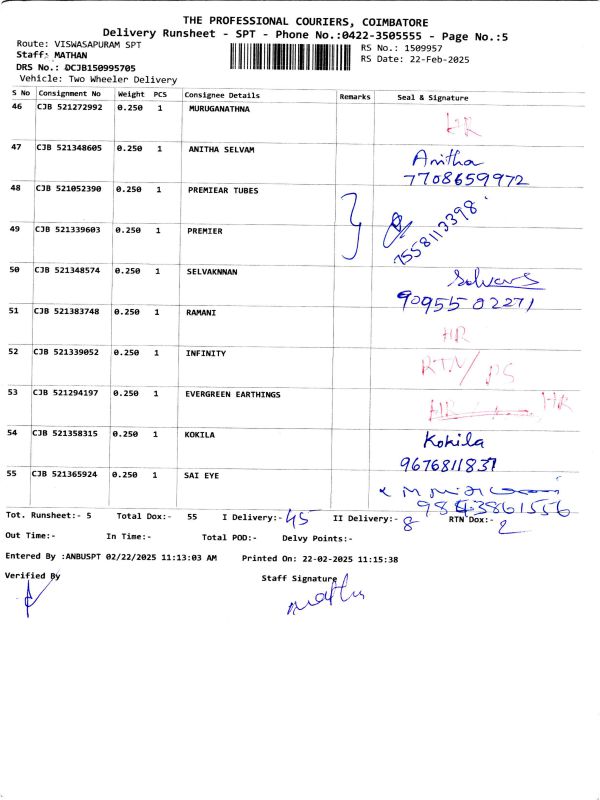 THE PROFESSIONAL COURIERS, COIMBATORE
Delivery Runsheet - SPT - Phone No.:0422-3505555 - Page No.:5
Route: VISWASAPURAM SPT
RS No.: 1509957
Staff: MATHAN
RS Date: 22-Feb-2025
DRS No.: DCJB150995705
Vehicle: Two Wheeler Delivery
S No Consignment No Weight PCS Consignee Details Remarks Seal & Signature
46 CJB 521272992 0.250 1 MURUGANATHNA
HR
47 CJB 521348605 0.250 1 ANITHA SELVAM Anitha
7708659972
48 CJB 521052390 0.250 1 PREMIEAR TUBES
7558113398
49 CJB 521339603 0.250 1 PREMIER
50 CJB 521348574 0.250 1 SELVAKNNAN
90955 02271
51 CJB 521383748 0.250 1 RAMANI
HR
52 CJB 521339052 0.250 1 INFINITY RTN/ PS
53 CJB 521294197 0.250 1 EVERGREEN EARTHINGS HR
54 CJB 521358315 0.250 1 KOKILA Kokila
9676811837
55 CJB 521365924 0.250 1 SAI EYE
9843861556
Tot. Runsheet:- 5 Total Dox:- 55 I Delivery:- 45 II Delivery:- 8 RTN Dox:- 2
Out Time:- In Time:- Total POD:- Delvy Points:-
Entered By :ANBUSPT 02/22/2025 11:13:03 AM Printed On: 22-02-2025 11:15:38
Verified By Staff Signature